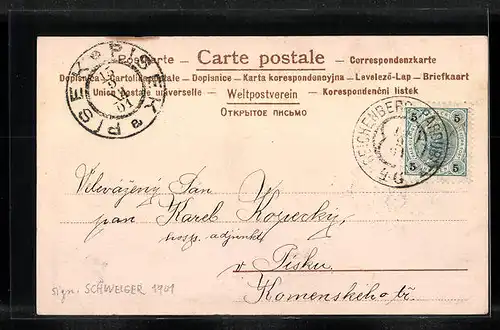 Postkarte — Carte postale — Correspondenzkarte
Dopisnica — Cartolina postale — Dopisnice — Karta korespondencyjna — Levelező-Lap — Briefkaart
Union postale universelle — Weltpostverein — Korespondenční listek
Открытое письмо
PÍSEK PÍSEK
01
REICHENBERG
5 5
5 5
Velevážený Pán
pan Karel Kopecký,
hosp. adjunkt
v Písku.
Komenského tř.
sign. SCHWEIGER 1901